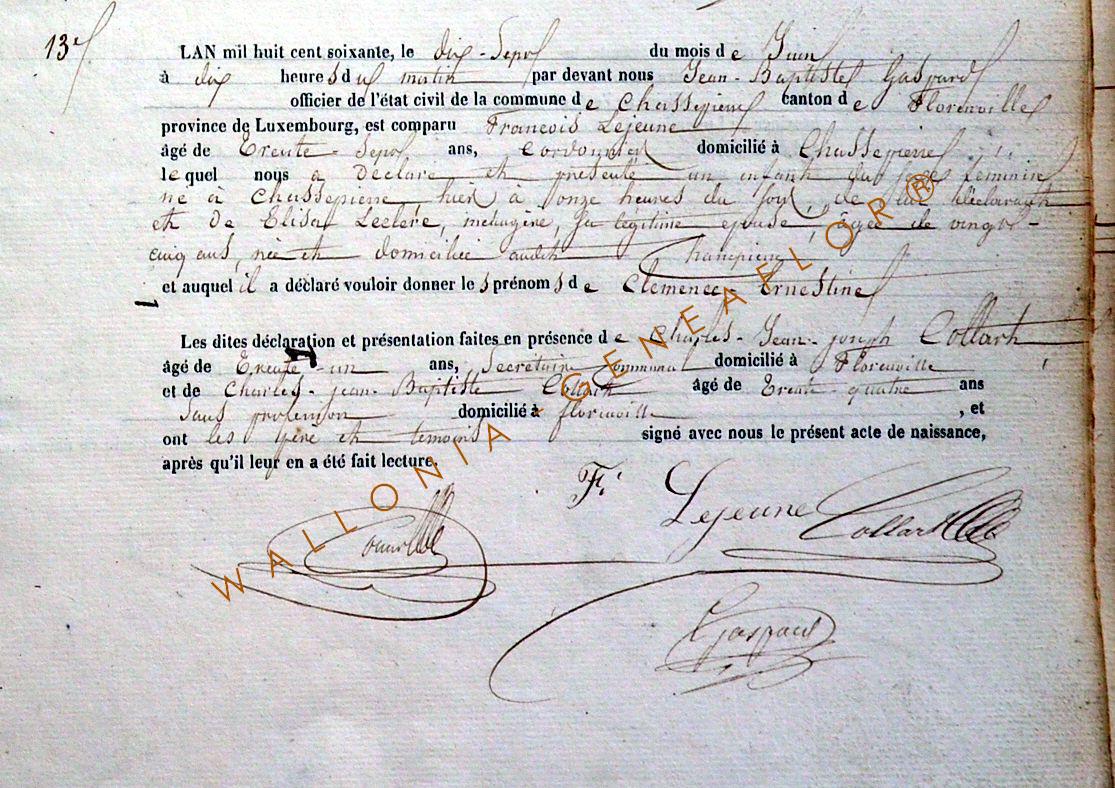 13
LAN mil huit cent soixante, le dix-Sept du mois de Juin
à dix heures du matin par devant nous Jean-Baptiste Gaspard
officier de l'état civil de la commune de Chassepierre canton de Florenville
province de Luxembourg, est comparu François Lejeune
âgé de Trente-Sept ans, Cordonnier domicilié à Chassepierre
lequel nous a déclaré et présenté un infant du sexe féminin
né à Chassepierre, hier à onze heures du soir, de lui déclarant
et de Elisa Leclere, ménagère, sa légitime épouse, âgée de vingt-
cinq ans, née et domiciliée audit Chassepierre
et auquel il a déclaré vouloir donner les prénoms de Clemence-Ernestine
Les dites déclaration et présentation faites en présence de Charles-Jean-joseph Collart
âgé de Trente-un ans, Secrétaire Communal domicilié à Florenville
et de Charles-jean-Baptiste Collart âgé de Trente-quatre ans
Sans profession domicilié à florenville, et
ont les père et temoins signé avec nous le présent acte de naissance,
après qu'il leur en a été fait lecture.
F. Lejeune Collart
Gaspard
WALLONIA GENEAFLOR®